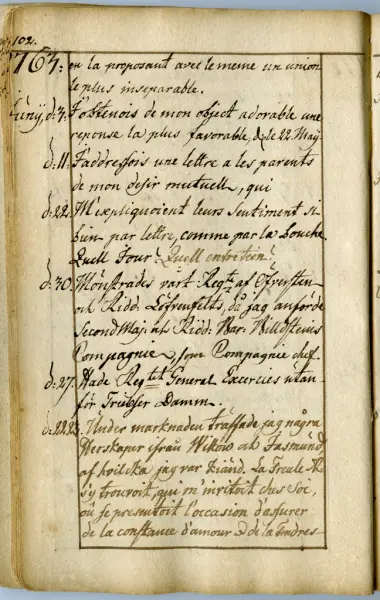 102.
1763. en la proposant avec le meme un union
le plus inseparable.
Junÿ, d: 3. J'obtenois de mon object adorable une
reponse la plus favorable, de le 22. Maÿ
d: 11. J'addressois une lettre a les parents
de mon desir mutuell, qui
d: 22. M'expliquoient leurs Sentiment si
bien par lettre, comme par la bouche
Quell Jour! Quell entretien!
d: 30. Mönstrades vårt Regte af Öfversten
och Ridd: Löfvenfelts, då jag anförde
Second Maj: ats Ridd: War: Willdsteins
Compagnie, som Compagnie chef.
d: 27. Hade Regtet General Exercies utan-
för Triebser Damm.
d: 22. Under marknaden träffade jag några
Herskaper ifrån Wittow och Jasmund,
af hvilcka jag var kiänd. La Freule
s'y trouvoit, qui m'invitoit ches Soi,
où je presentoit l'occasion d'assurer
de la constance d'amour & de la tendres